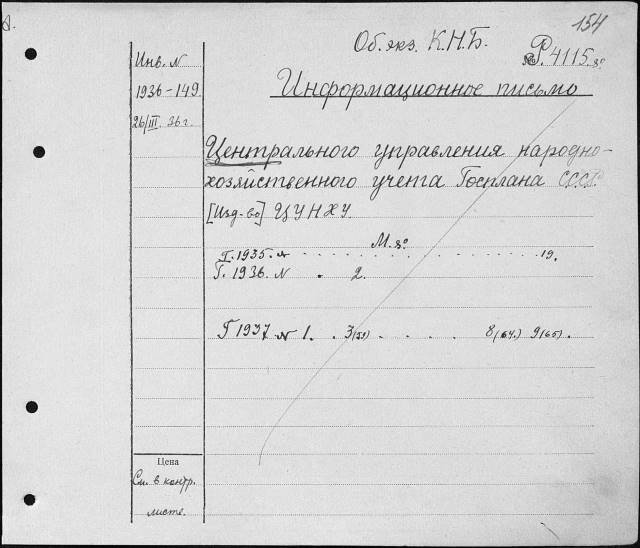 154
Об. экз. К.Н.Б.
Р. 4115.
Инв. N
1936-149.
26/III. 36 г.
Информационное письмо
Центрального управления народно-
хозяйственного учета Госплана СССР.
[Изд-во] ЦУНХУ.
М. 8°
Г. 1935. N . . . . . . . . . . . . . . . 19.
Г. 1936. N . 2.
Г 1937 N 1. . 3(59) . . . . 8(64.) 9(65).
Цена
См. в контр.
листе.